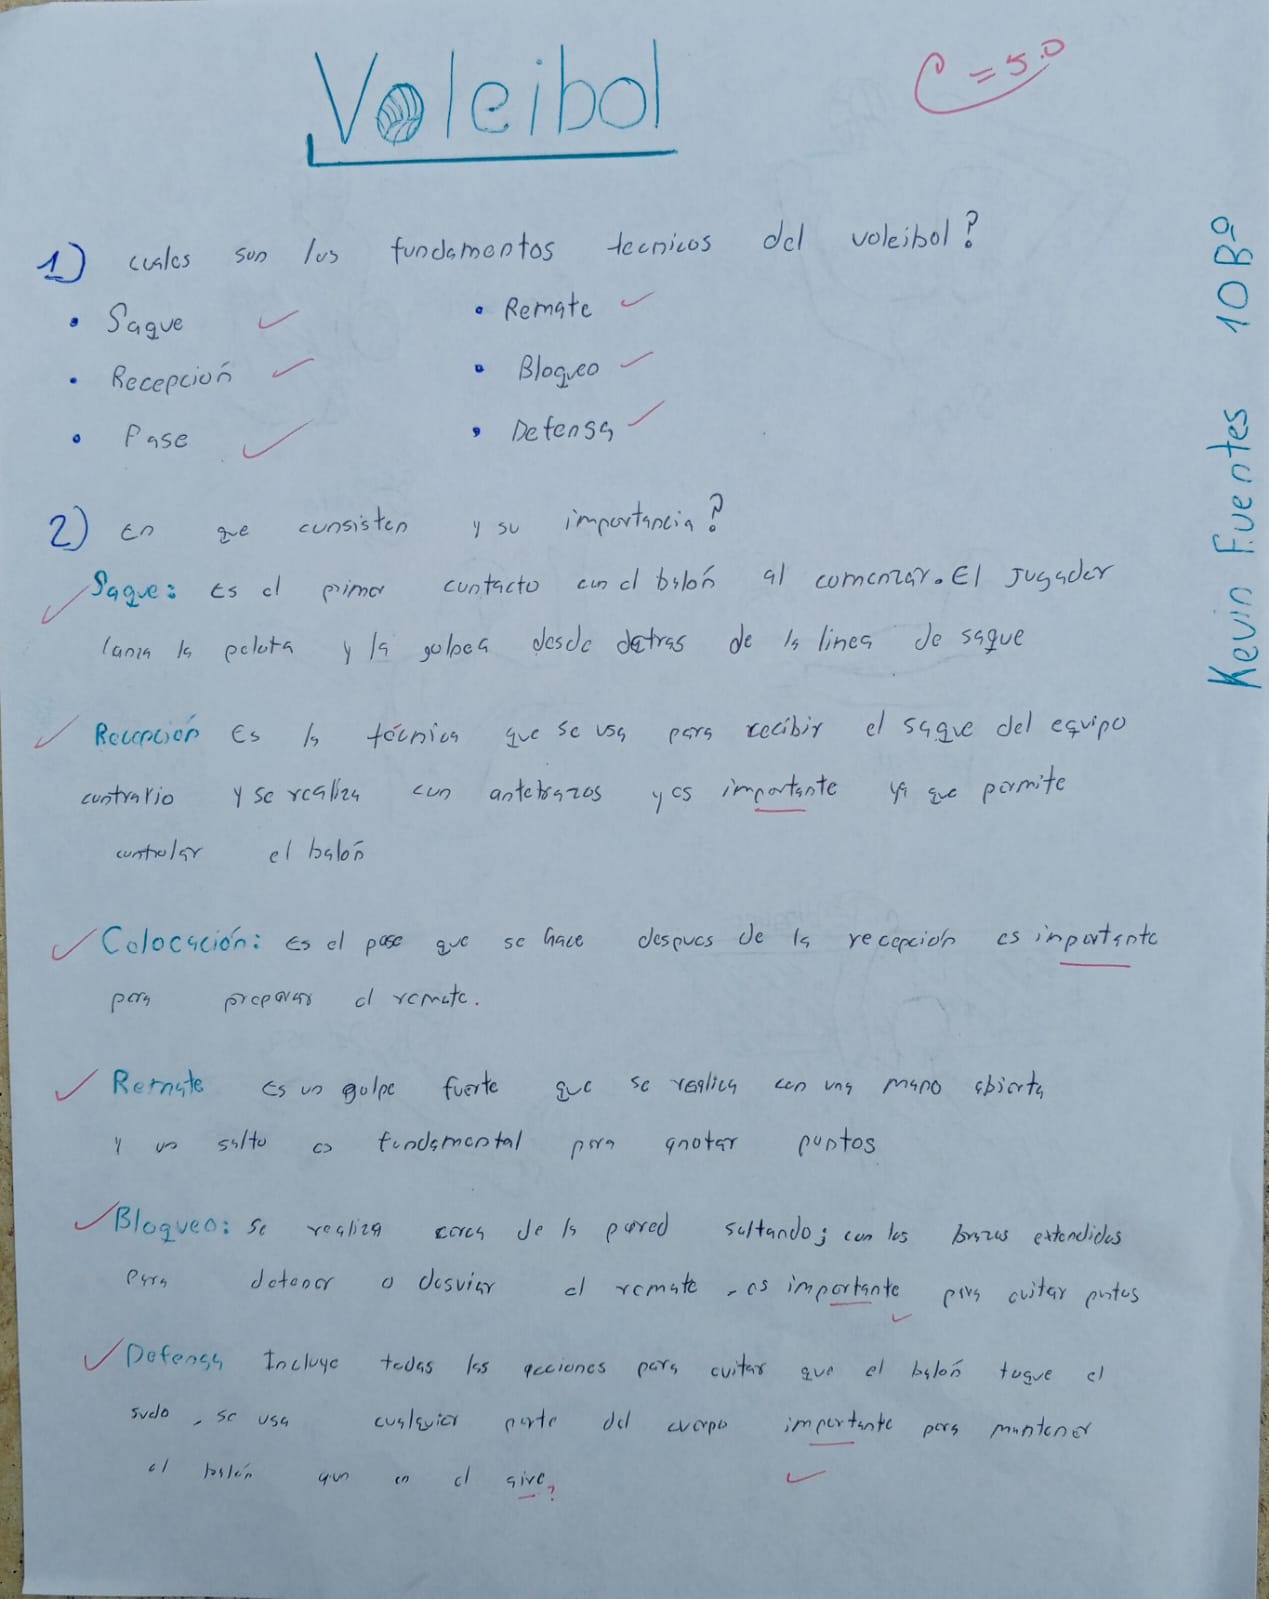 Voleibol
C = 5.0
Kevin Fuentes 10Bº
1) cuales son los fundamentos tecnicos del voleibol?
• Saque • Remate
• Recepción • Bloqueo
• Pase • Defensa
2) En que consisten y su importancia?
Saque: Es el primer contacto con el balón al comenzar. El Jugador
lanza la pelota y la golpea desde detras de la linea de saque
Recepción Es la técnica que se usa para recibir el saque del equipo
contrario y se realiza con antebrazos y es importante ya que permite
controlar el balón
Colocación: Es el pase que se hace despues de la recepción es importante
para preparar el remate.
Remate Es un golpe fuerte que se realica con una mano abierta
y un salto es fundamental para anotar puntos
Bloqueo: Se realiza cerca de la pared saltando; con los brazos extendidos
para detener o desviar el remate, es importante para evitar puntos
Defensa Incluye todas las acciones para evitar que el balón toque el
suelo, se usa cualquier parte del cuerpo importante para mantener
el balón aun en el aire ?